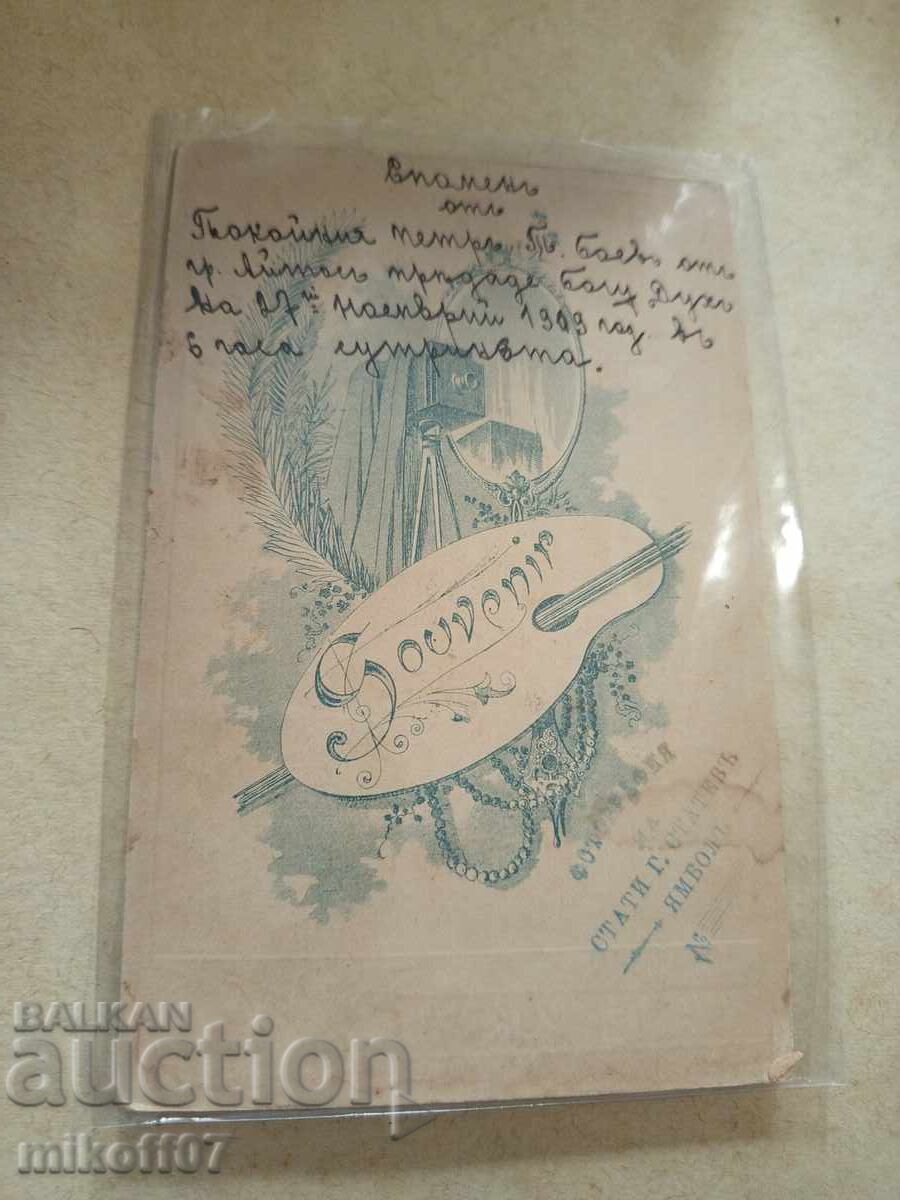 Впоменъ
отъ
Покойния петръ Пв. Боевъ отъ
гр. Айтосъ придаде Богу Духъ
на 27ий ноемврий 1909 год. въ
6 часа сутриньта.
Souvenir
ФОТОГРАФИЯ
НА
СТАТИ Г. СТАТЕВЪ
ЯМБОЛЪ
№
BALKAN
auction
mikoff07